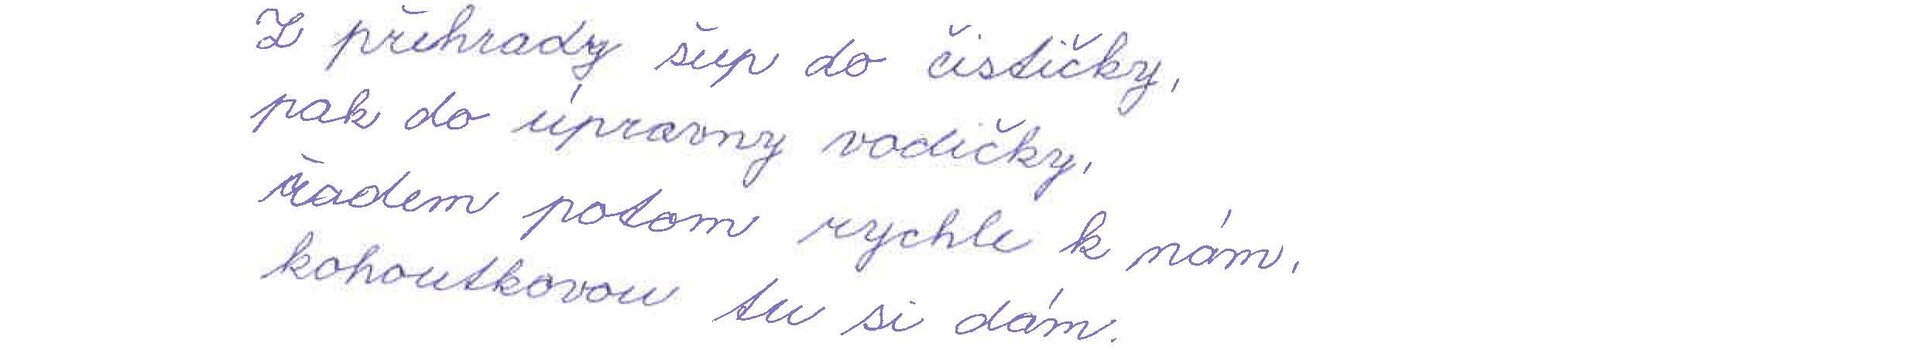 Z přehrady šup do čističky,
pak do úpravny vodičky,
řadem potom rychle k nám,
kohoutkovou tu si dám.